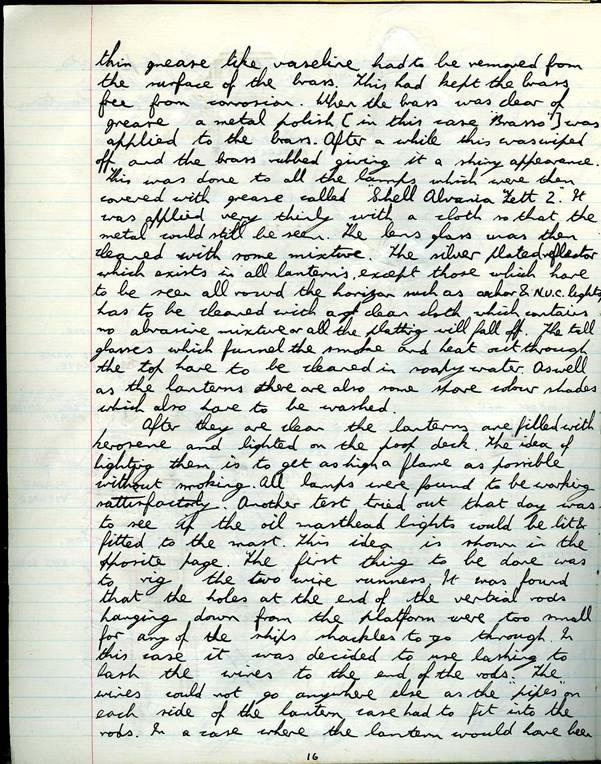 thin grease like vaseline had to be removed from
the surface of the brass. This had kept the brass
free from corrosion. When the brass was clear of
grease a metal polish [in this case "Brasso"] was
applied to the brass. After a while this was wiped
off and the brass rubbed giving it a shiny appearance.
This was done to all the lamps which were then
covered with grease called "Shell Alvania Fett 2." It
was applied very thinly with a cloth so that the
metal could still be seen. The lens glass was then
cleaned with some mixture. The silver plated reflector
which exists in all lanterns, except those which have
to be seen all round the horizon such as anchor & N.U.C. lights
has to be cleaned with a clean cloth which contains
no abrasive mixture or all the platting will fall off. The tall
glasses which funnel the smoke and heat out through
the top have to be cleaned in soapy water. Aswell
as the lanterns there are also some spare colour shades
which also have to be washed.
After they are clean the lanterns are filled with
kerosene and lighted on the poop deck. The idea of
lighting them is to get as high a flame as possible
without smoking. All lamps were found to be working
sattisfactorly. Another test tried out that day was
to see if the oil masthead lights could be lit &
fitted to the mast. This idea is shown in the
opposite page. The first thing to be done was
to rig the two wire runners. It was found
that the holes at the end of the vertical rods
hanging down from the platform were too small
for any of the ships shackles to go through. In
this case it was decided to use lashing to
lash the wires to the end of the rods. The
wires could not go anywhere else as the "pipes" on
each side of the lantern case had to fit into the
rods. In a case where the lantern would have been
16